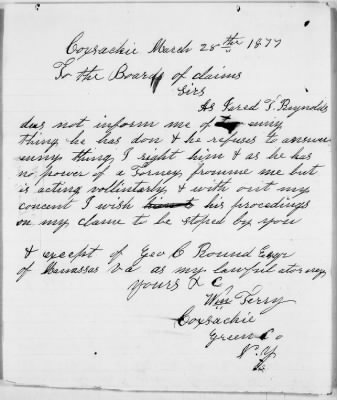 Coxsackie March 28th 1877
To the Board of claims
Sirs
As Jared T. Reynolds
dus not inform me of enny
thing he has don & he refuses to answer
enny thing I right him & as he has
no power of a Torney fromme me but
is acting vollintarly, & with out my
concent I wish his procedings
on my clame to be stoped by you
& except of Geo C Round Esqr
of Manassas Va as my lawfull attorney
yours & C
Wm Terry
Coxsackie
Green Co
N. Y.